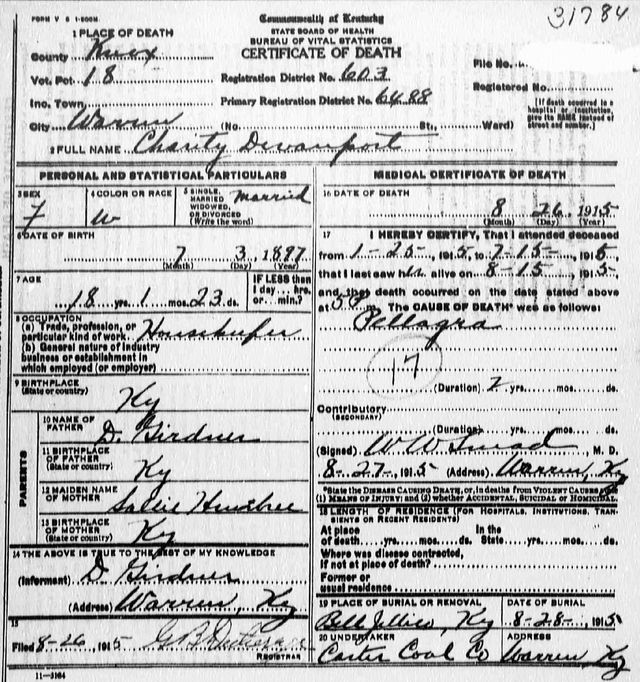 FORM V S 1-500M.
31784
Commonwealth of Kentucky
STATE BOARD OF HEALTH
BUREAU OF VITAL STATISTICS
CERTIFICATE OF DEATH
1 PLACE OF DEATH
County Knox
Vot. Pct 18
Registration District No. 603
Inc. Town
Primary Registration District No. 6488
City Warren (No. St., Ward)
File No.
Registered No.
[If death occurred in a
hospital or institution,
give its NAME instead of
street and number.]
2 FULL NAME Charity Devanport
PERSONAL AND STATISTICAL PARTICULARS
3 SEX F
4 COLOR OR RACE W
5 SINGLE, MARRIED WIDOWED, OR DIVORCED (Write the word) Married
6 DATE OF BIRTH
7 3 1897
(Month) (Day) (Year)
7 AGE
18 yrs. 1 mos. 23 ds.
IF LESS than
1 day... hrs.
or... min.?
8 OCCUPATION
(a) Trade, profession, or
particular kind of work Housekeeper
(b) General nature of industry
business or establishment in
which employed (or employer)
9 BIRTHPLACE
(State or country) Ky
PARENTS
10 NAME OF
FATHER D. Girdner
11 BIRTHPLACE
OF FATHER
(State or country) Ky
12 MAIDEN NAME
OF MOTHER Sallie
13 BIRTHPLACE
OF MOTHER
(State or country) Ky
14 THE ABOVE IS TRUE TO THE BEST OF MY KNOWLEDGE
(Informent) D. Girdner
(Address) Warren, Ky
15
Filed 8-26, 1915
REGISTRAR
11-3184
MEDICAL CERTIFICATE OF DEATH
16 DATE OF DEATH
8 26 1915
(Month) (Day) (Year)
17 I HEREBY CERTIFY, That I attended deceased
from 1-25-, 1915, to 7-15-, 1915
that I last saw her alive on 8-15-, 1915
and that death occurred on the date stated above
at 5 P m. The CAUSE OF DEATH* was as follows:
Pellagra
17
(Duration) 2 yrs. mos. ds.
Contributory
(SECONDARY)
(Duration) yrs. mos. ds.
(Signed) W W , M. D.
8-27-, 1915 (Address) Warren, Ky
*State the DISEASE CAUSING DEATH, or, in deaths from VIOLENT CAUSES
(1) MEANS OF INJURY; and (2) whether ACCIDENTAL, SUICIDAL or HOMICIDAL.
18 LENGTH OF RESIDENCE (FOR HOSPITALS, INSTITUTIONS, TRAN-
SIENTS OR RECENT RESIDENTS)
At place In the
of death yrs. mos. ds. State yrs. mos. ds.
Where was disease contracted,
if not at place of death?
Former or
usual residence
19 PLACE OF BURIAL OR REMOVAL
Bell Jellico, Ky
DATE OF BURIAL
8-28-, 1915
20 UNDERTAKER
Carter Coal Co
ADDRESS
Warren, Ky